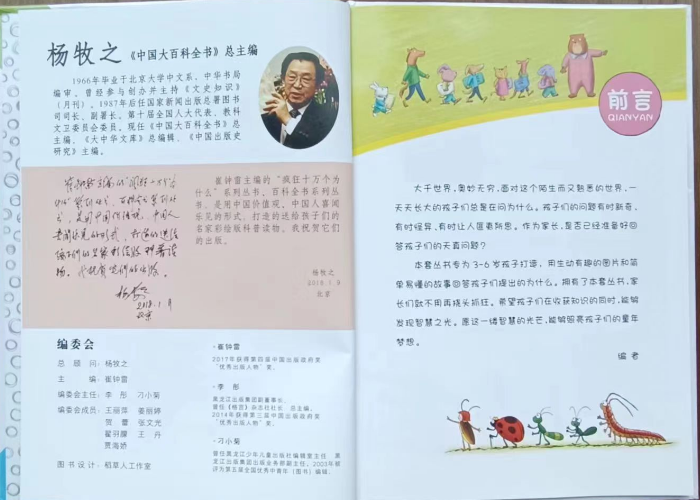 杨牧之 《中国大百科全书》总主编
1966年毕业于北京大学中文系,中华书局
编审。曾经参与创办并主持《文史知识》
(月刊)。1987年后任国家新闻出版总署图书
司司长、副署长。第十届全国人大代表、教科
文卫委员会委员。现任《中国大百科全书》总
主编、《大中华文库》总编辑、《中国出版史
研究》主编。
崔钟雷主编的“疯狂十万个为
什么”系列丛书、百科全书系列丛
书,是用中国价值观、中国人喜闻
乐见的形式,打造的送给孩子们的
名家彩绘版科普读物。我祝贺它们
的出版。
杨牧之
2018.1.9
北京
2018.1.9
北京
编委会
总顾问:杨牧之
主编:崔钟雷
编委会主任:李彤 刁小菊
编委会成员:王丽萍 姜丽婷
贺蕾 张文光
翟羽朦 王丹
贾海娇
图书设计:稻草人工作室
·崔钟雷
2017年获得第四届中国出版政府奖
“优秀出版人物”奖。
·李彤
黑龙江出版集团副董事长。
曾任《格言》杂志社社长、总主编。
2014年获得第三届中国出版政府奖
“优秀出版人物”奖。
·刁小菊
曾任黑龙江少年儿童出版社编辑室主任、黑
龙江出版集团出版业务部副主任。2003年被
评为第五届全国优秀中青年(图书)编辑。
前言
QIANYAN
大千世界,奥妙无穷,面对这个陌生而又熟悉的世界,一
天天长大的孩子们总是在问为什么。孩子们的问题有时新奇,
有时怪异,有时让人匪夷所思。作为家长,是否已经准备好回
答孩子们的天真问题?
本套丛书专为3-6岁孩子打造,用生动有趣的图片和简
单易懂的故事回答孩子们提出的为什么。拥有了本套丛书,家
长们就不用再挠头抓狂。希望孩子们在收获知识的同时,能够
发现智慧之光。愿这一缕智慧的光芒,能够照亮孩子们的童年
梦想。
编者